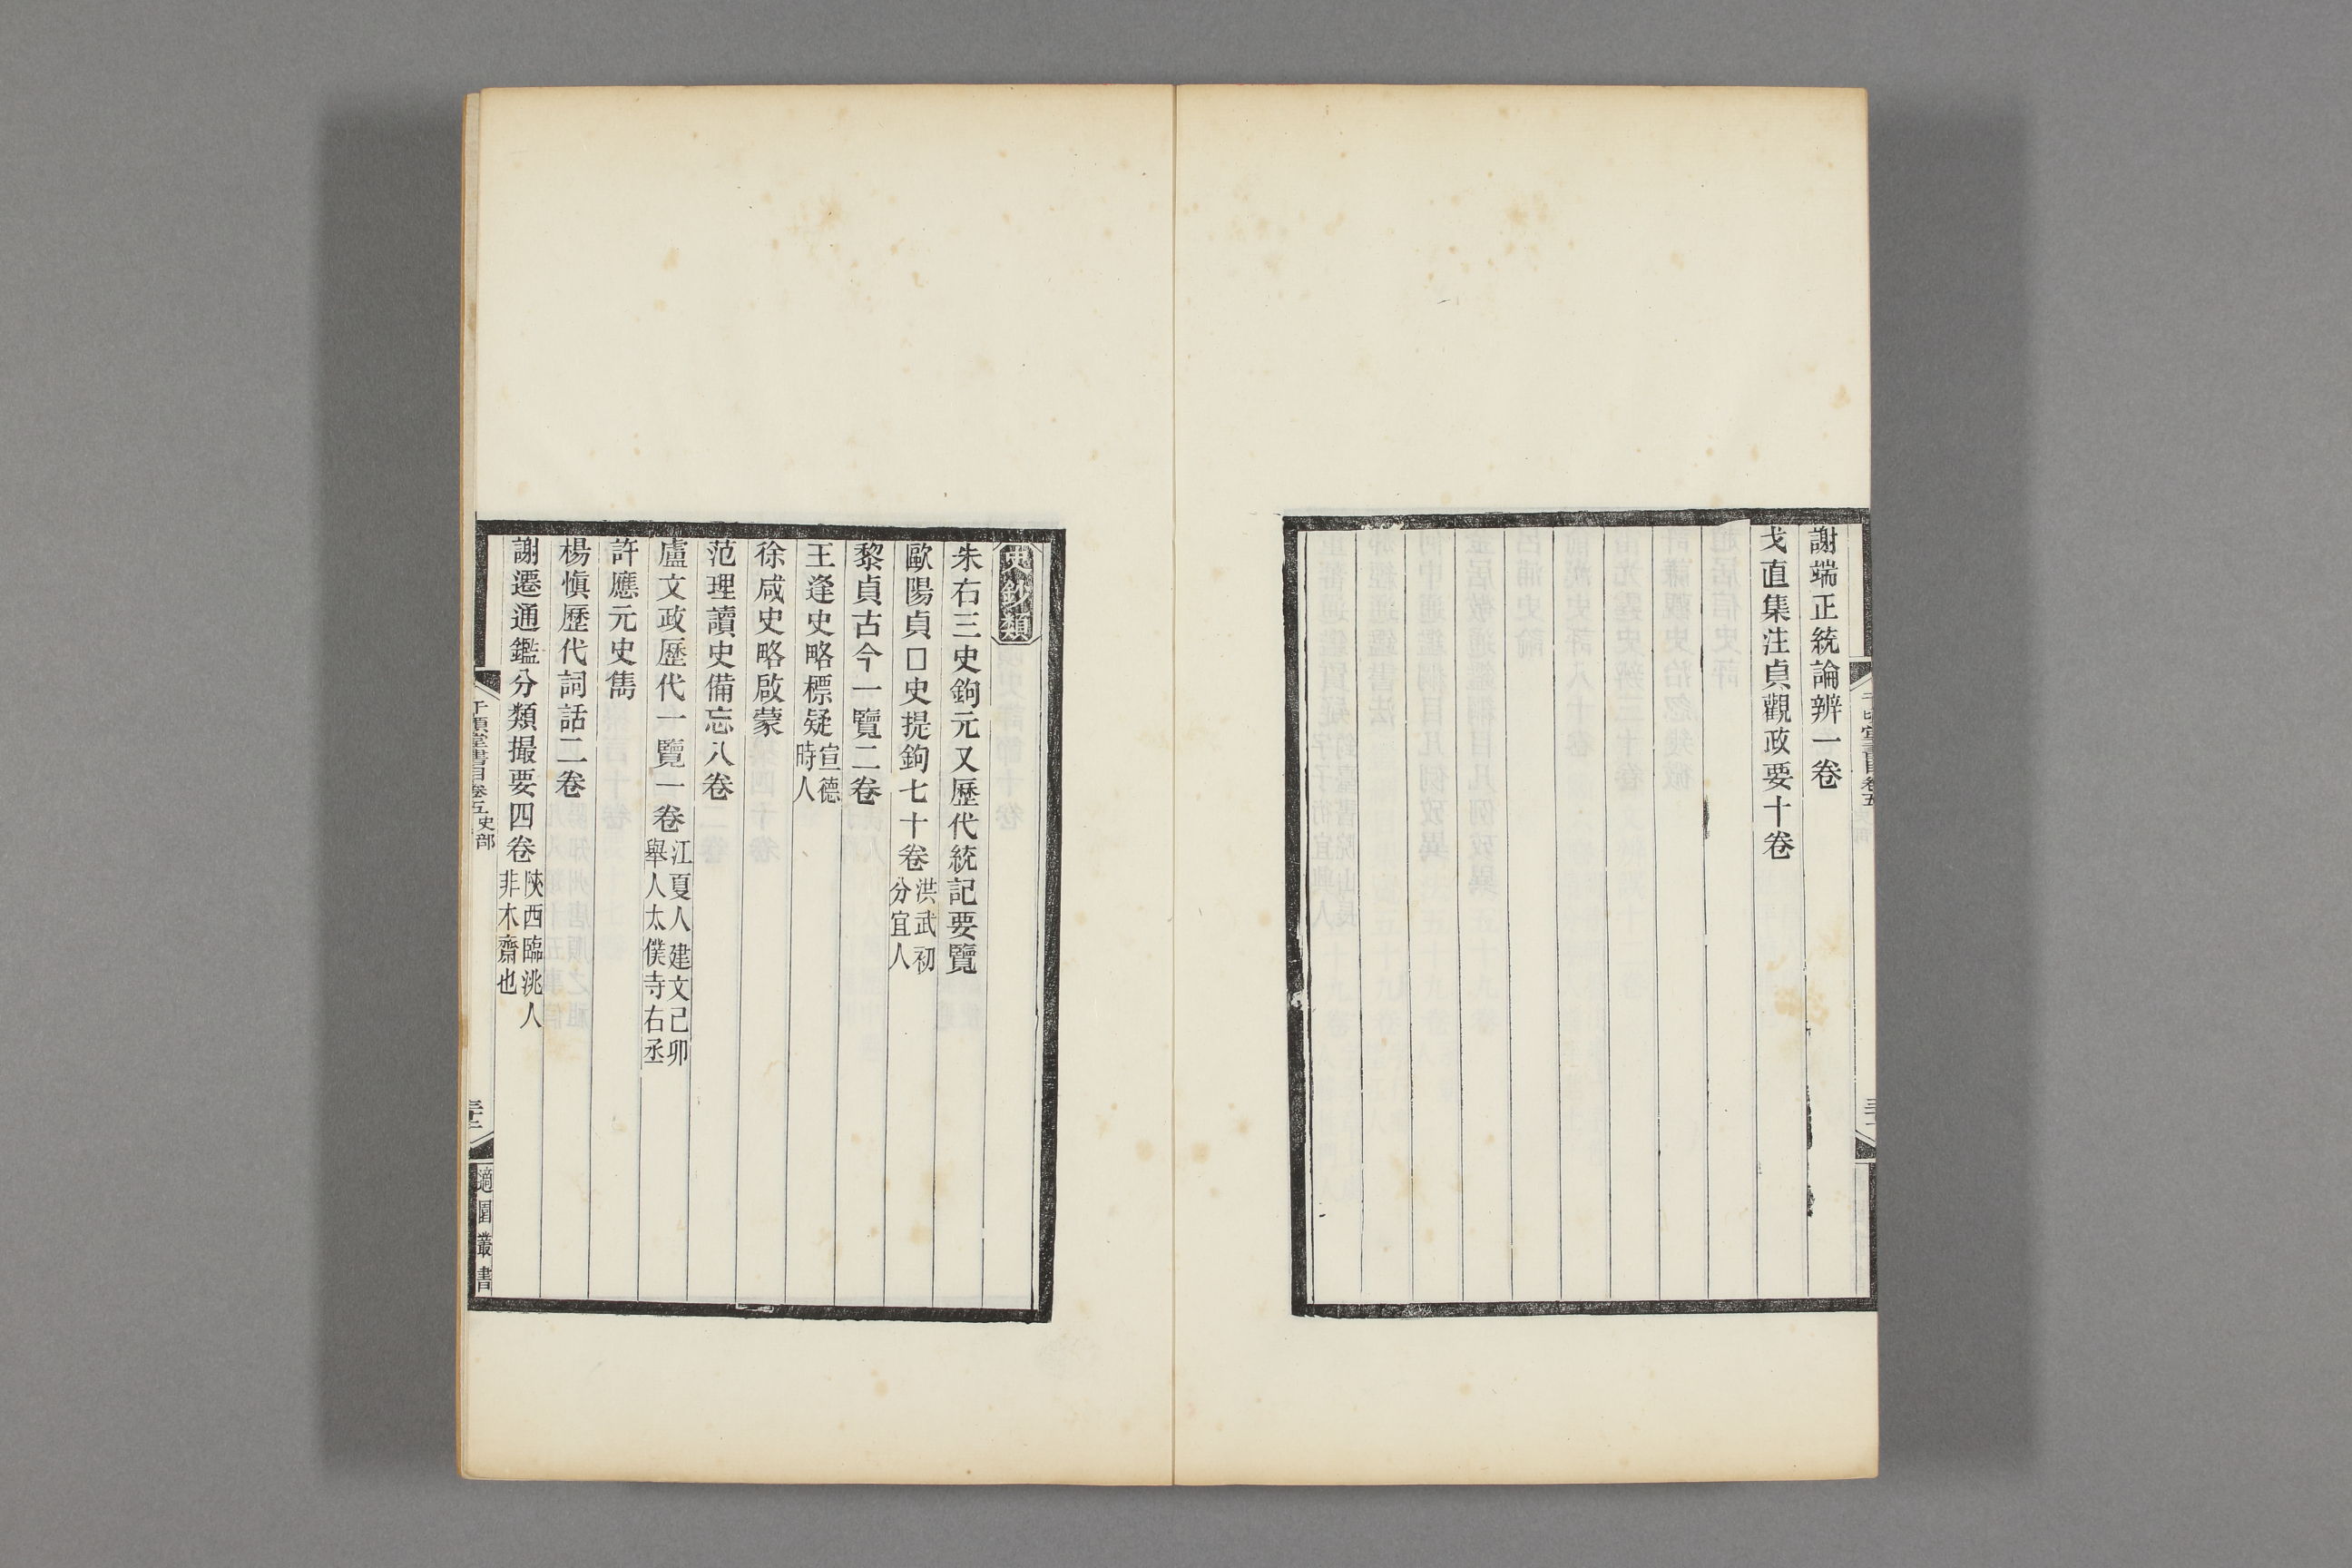 謝端正統論辨一卷
戈直集注貞觀政要十卷
史鈔類
朱右三史鉤元又歷代統記要覽
歐陽貞□史提鉤七十卷洪武初分宜人
黎貞古今一覽二卷
王逢史略標疑宣德時人
徐咸史略啟蒙
范理讀史備忘八卷
盧文政歷代一覽一卷江夏人建文己卯舉人太僕寺右丞
許應元史雋
楊愼歷代詞話二卷
謝遷通鑑分類撮要四卷陝西臨洮人非木齋也
千頃堂書目卷五史部
適園叢書